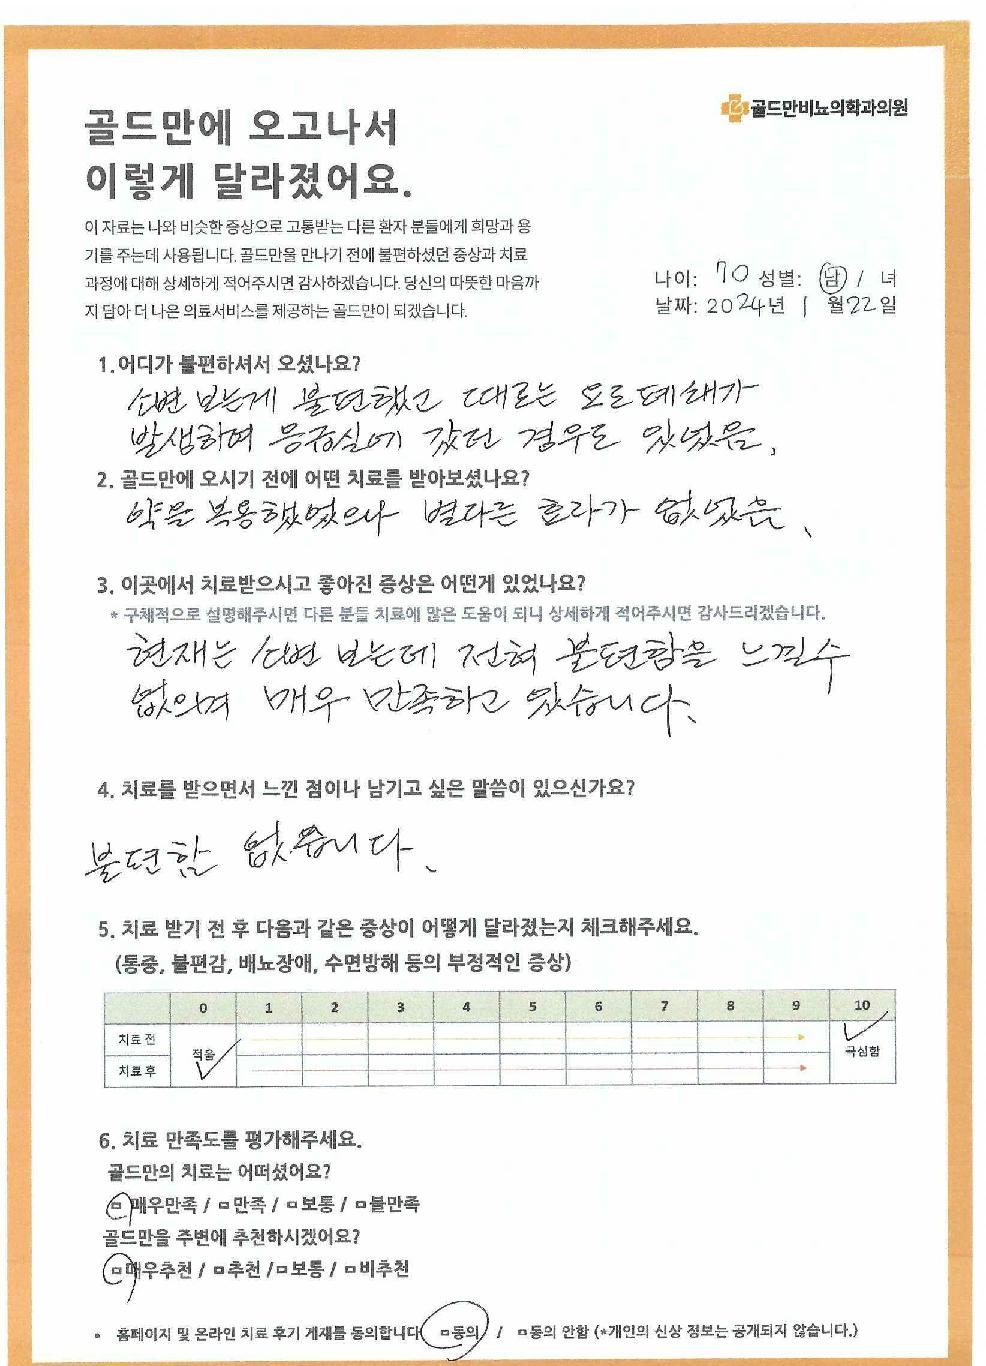 골드만비뇨의학과의원
골드만에 오고나서
이렇게 달라졌어요.
이 자료는 나와 비슷한 증상으로 고통받는 다른 환자 분들에게 희망과 용
기를 주는데 사용됩니다. 골드만을 만나기 전에 불편하셨던 증상과 치료
과정에 대해 상세하게 적어주시면 감사하겠습니다. 당신의 따뜻한 마음까
지 담아 더 나은 의료서비스를 제공하는 골드만이 되겠습니다.
나이: 70 성별: 남 / 녀
날짜: 2024년 1 월 22일
1. 어디가 불편하셔서 오셨나요?
소변 보는게 불편했고 때로는 요로폐쇄가
발생하여 응급실에 갔던 경우도 있었음.
2. 골드만에 오시기 전에 어떤 치료를 받아보셨나요?
약을 복용했었으나 별다른 효과가 없었음.
3. 이곳에서 치료받으시고 좋아진 증상은 어떤게 있었나요?
* 구체적으로 설명해주시면 다른 분들 치료에 많은 도움이 되니 상세하게 적어주시면 감사드리겠습니다.
현재는 소변 보는데 전혀 불편함을 느낄수
없으며 매우 만족하고 있습니다.
4. 치료를 받으면서 느낀 점이나 남기고 싶은 말씀이 있으신가요?
불편함 없습니다.
5. 치료 받기 전 후 다음과 같은 증상이 어떻게 달라졌는지 체크해주세요.
(통증, 불편감, 배뇨장애, 수면방해 등의 부정적인 증상)
0 1 2 3 4 5 6 7 8 9 10
치료 전
적음 극심함
치료 후
6. 치료 만족도를 평가해주세요.
골드만의 치료는 어떠셨어요?
□ 매우만족 / □ 만족 / □ 보통 / □ 불만족
골드만을 주변에 추천하시겠어요?
□ 매우추천 / □ 추천 / □ 보통 / □ 비추천
* 홈페이지 및 온라인 치료 후기 게재를 동의합니다 □ 동의 / □ 동의 안함 (*개인의 신상 정보는 공개되지 않습니다.)